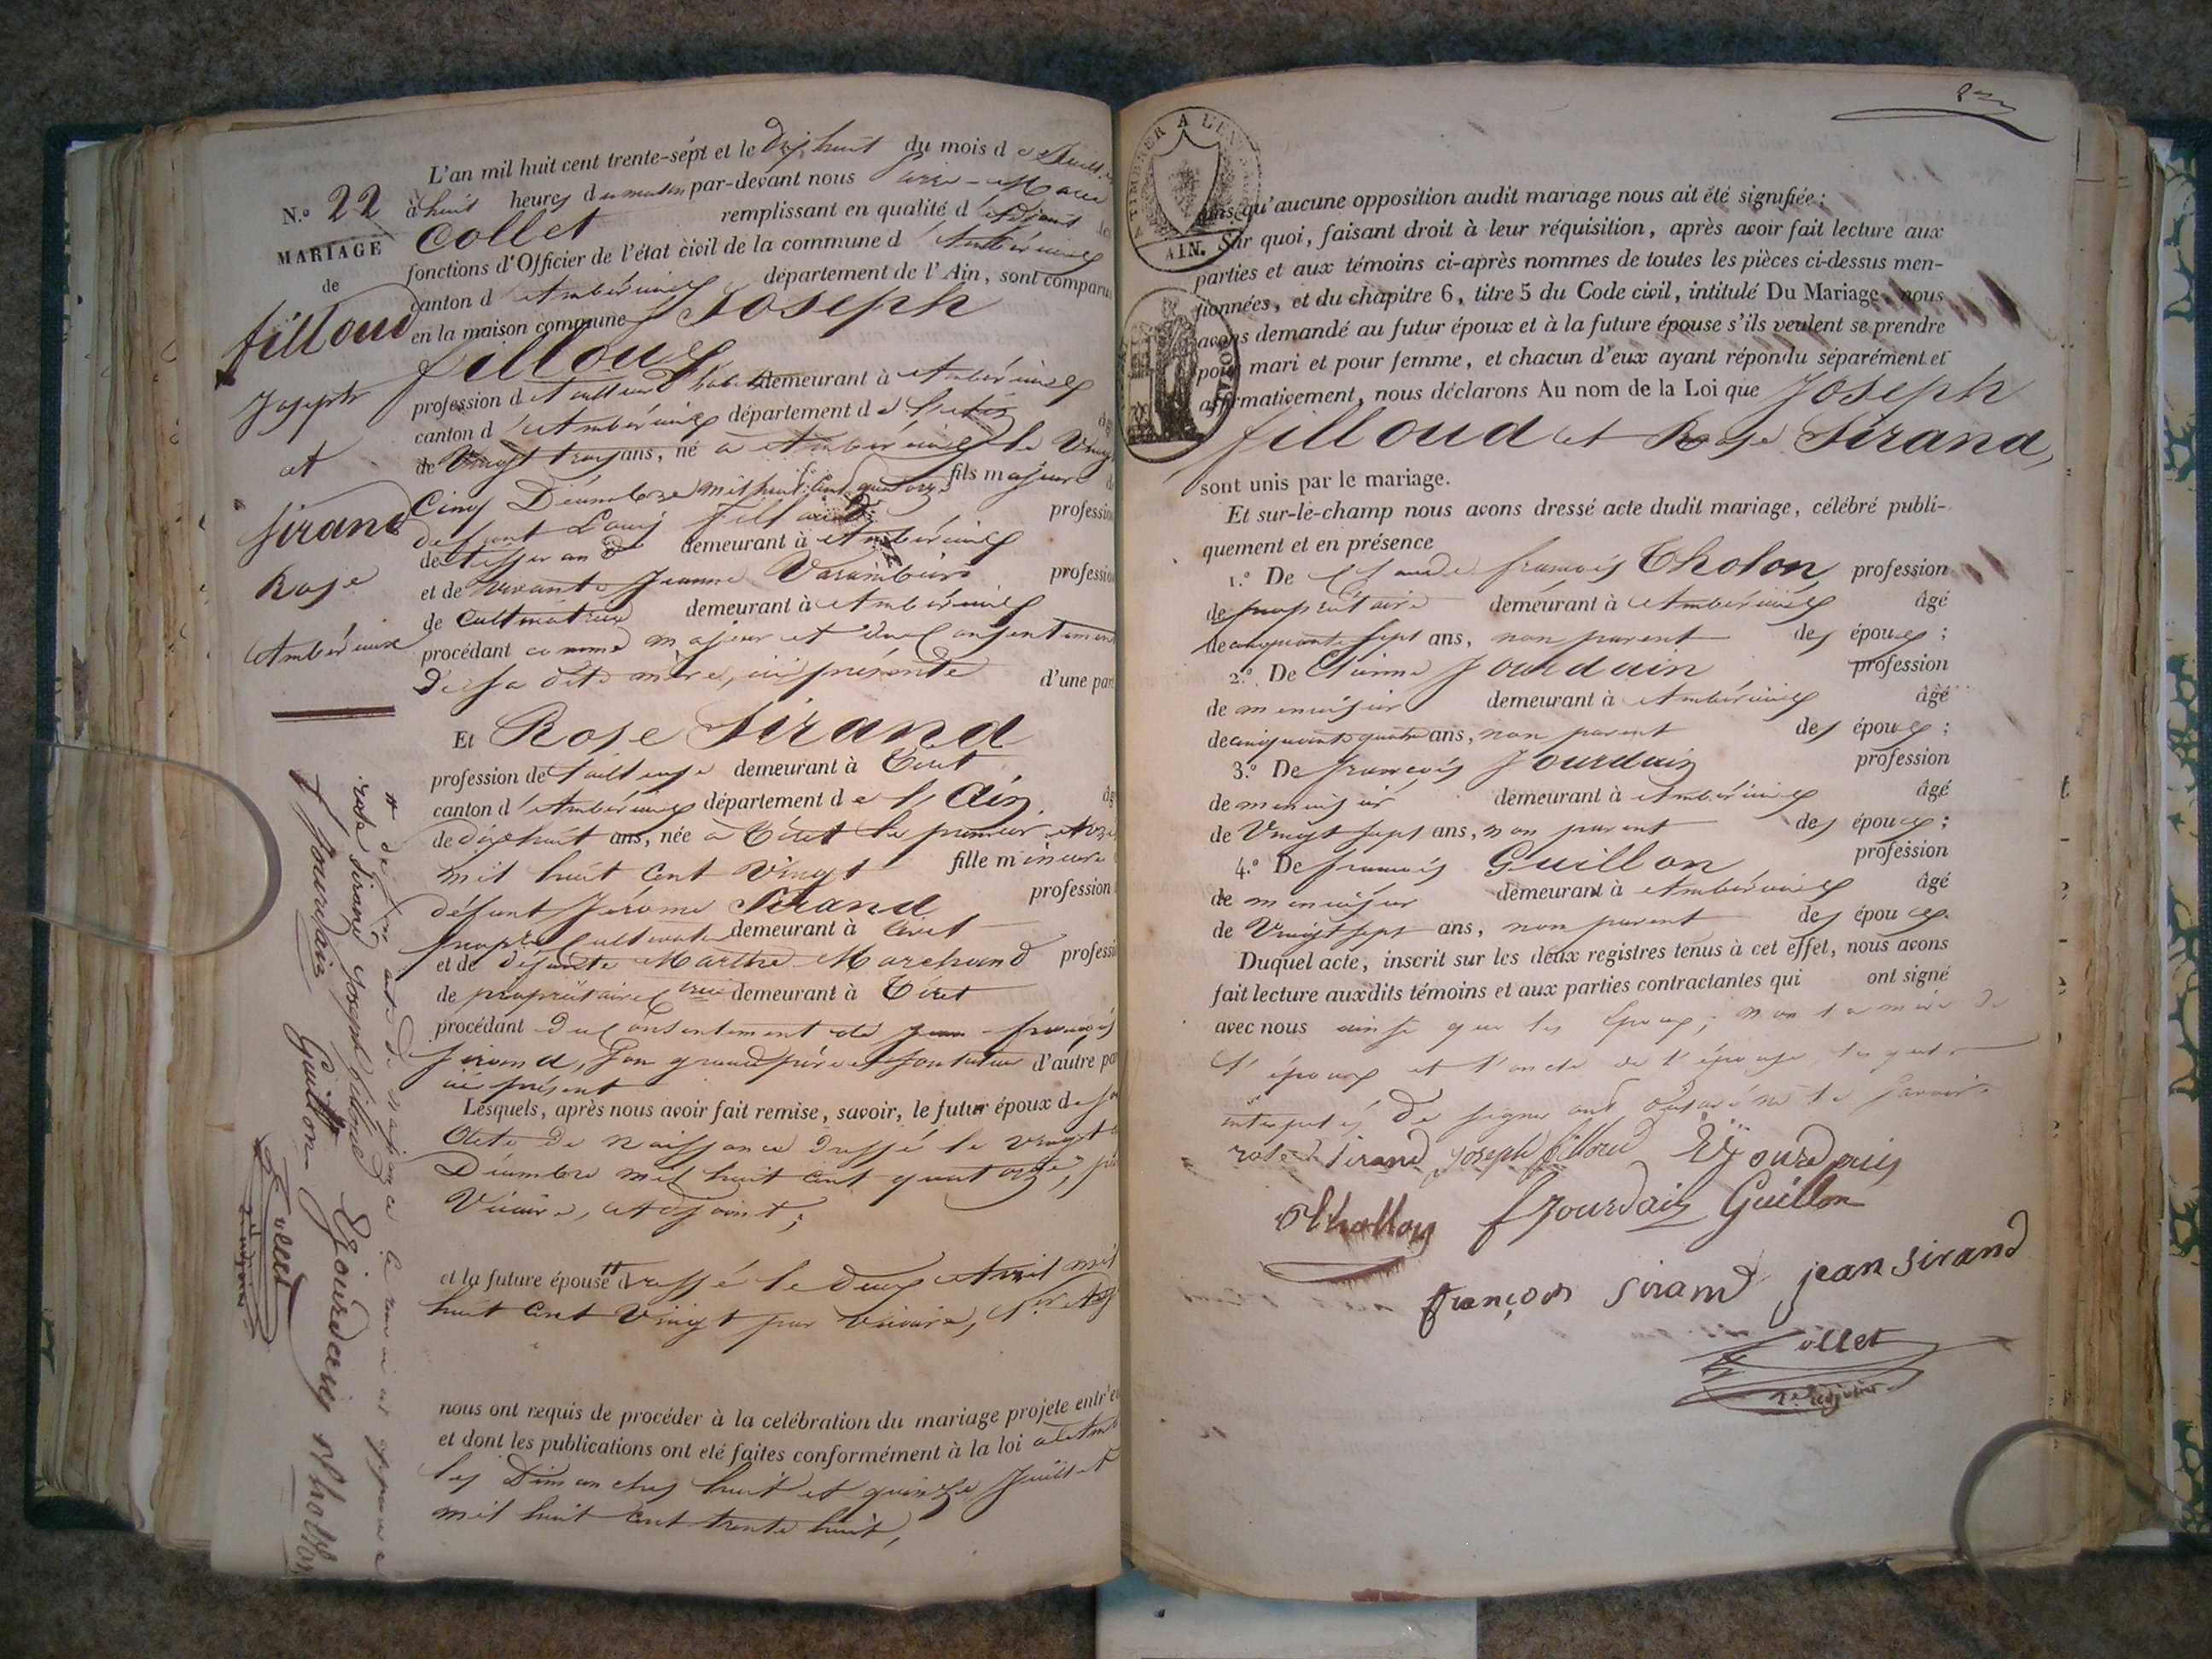 N.º 22
MARIAGE
de
filloud
Joseph
et
Sirand
Rose
Ambérieux
L'an mil huit cent trente-sept et le dix huit du mois de Juillet
à huit heures du matin par-devant nous Pierre-Marie
Collet remplissant en qualité d'adjoint les
fonctions d'Officier de l'état civil de la commune d'Ambérieux
canton d'Ambérieux département de l'Ain, sont comparus
en la maison commune Joseph
filloud
profession de tailleur d'habits demeurant à Ambérieux
canton d'Ambérieux département de l'ain âgé
de Vingt trois ans, né à Ambérieux le Vingt
Cinq Décembre mil huit Cent quatorze fils majeur de
défunt Louis Filloud profession
de tisserand demeurant à Ambérieux
et de vivante Jeanne Varambon profession
de Cultivatrice demeurant à Ambérieux
procédant comme majeur et du Consentement
de sa dite mère, ici présente d'une part
Et Rose Sirand
profession de tailleuse demeurant à Tiret
canton d'Ambérieux département de l'Ain. âgée
de dix huit ans, née à Tiret le premier Avril
mil huit Cent Vingt fille mineure
défunt Jérôme Sirand profession
propre Cultivateur demeurant à Tiret
et de défunte Marthe Marchand profession
de propriétaire demeurant à Tiret
procédant du Consentement de françois
Sirand, son grand père et son tuteur d'autre part
ici présent
Lesquels, après nous avoir fait remise, savoir, le futur époux de son
Acte de Naissance dressé le vingt
Décembre mil huit Cent quatorze, par
Vicaire, Adjoint;
et la future épouse # dressé le deux Avril mil
huit Cent Vingt par Vicaire, 1er Adj
nous ont requis de procéder à la celébration du mariage projeté entr'eux
et dont les publications ont eté faites conformément à la loi à Amb
les Dimanches huit et quinze Juillet
mil huit Cent trente huit,
# de son acte de naissance
rose Sirand Joseph filloud Ejourdain Thollon
f Jourdain Guillon
Collet
TIMBRER A L'EX
AIN.
sans qu'aucune opposition audit mariage nous ait été signifiée;
Sur quoi, faisant droit à leur réquisition, après avoir fait lecture aux
parties et aux témoins ci-après nommes de toutes les pièces ci-dessus men-
tionnées, et du chapitre 6, titre 5 du Code civil, intitulé Du Mariage, nous
avons demandé au futur époux et à la future épouse s'ils veulent se prendre
pour mari et pour femme, et chacun d'eux ayant répondu séparément et
affirmativement, nous déclarons Au nom de la Loi que Joseph
filloud et Rose Sirand,
sont unis par le mariage.
Et sur-le-champ nous avons dressé acte dudit mariage, célébré publi-
quement et en présence
1.º De Claude françois Tholon, profession
de propriétaire demeurant à Ambérieux âgé
de cinquante sept ans, non parent des époux;
2.º De Etienne Jourdain profession
de menuisier demeurant à Ambérieux âgé
de cinquante quatre ans, non parent des époux;
3.º De françois Jourdain profession
de menuisier demeurant à Ambérieux âgé
de Vingt sept ans, non parent des époux;
4.º De françois Guillon profession
de menuisier demeurant à Ambérieux âgé
de Vingt sept ans, non parent des époux.
Duquel acte, inscrit sur les deux registres tenus à cet effet, nous avons
fait lecture auxdits témoins et aux parties contractantes qui ont signé
avec nous ainsi que les époux; non la mère de
l'époux et l'oncle de l'épouse lesquels
interpellés de signer ont déclaré ne le savoir.
rose Sirand joseph filloud Ejourdain
Thollon f Jourdain Guillon
françois Sirand jean Sirand
Collet